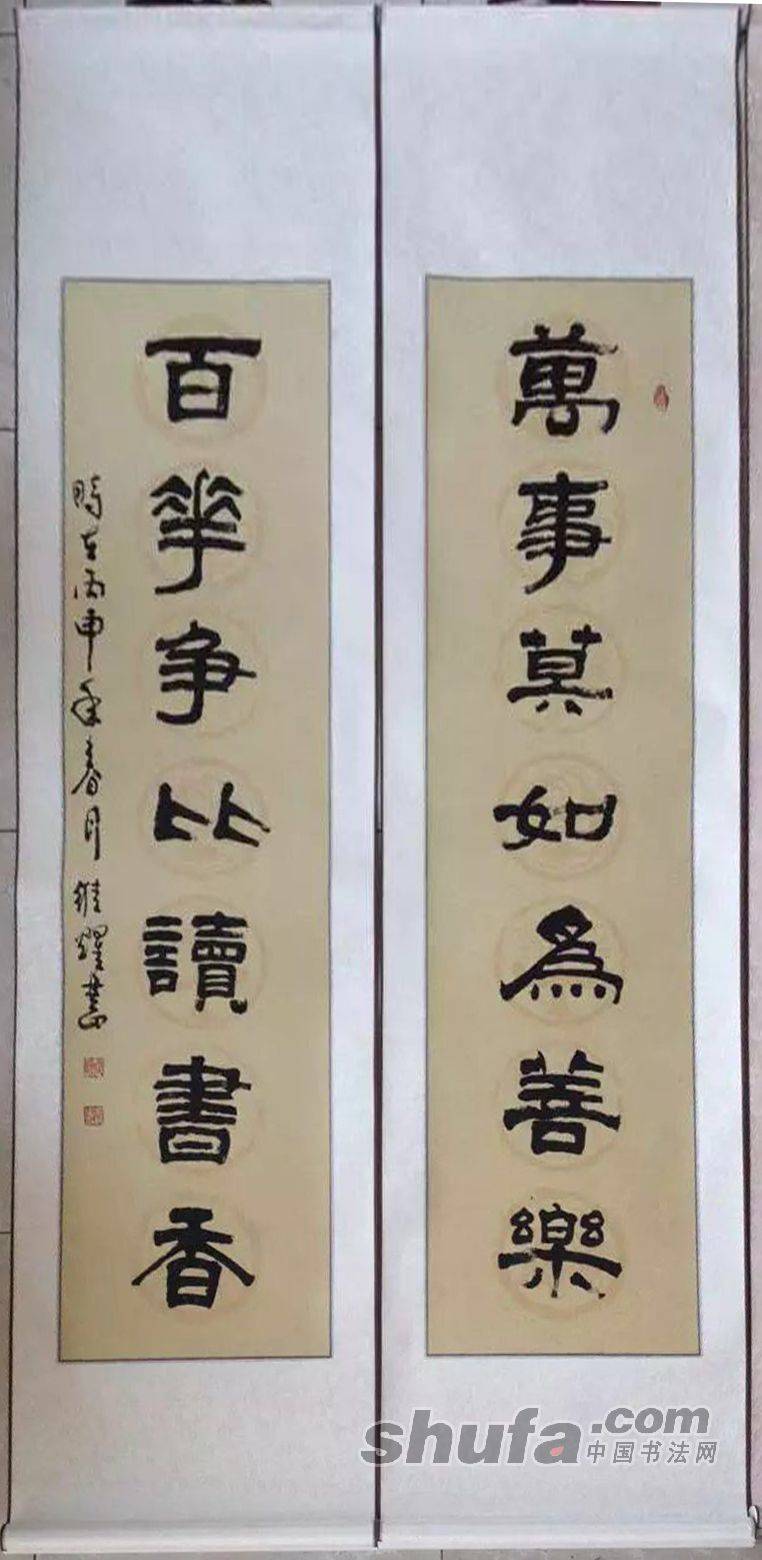 萬事莫如爲善樂
百華争比讀書香
時在丙申年春月維耀書
shufa.com
中国书法网